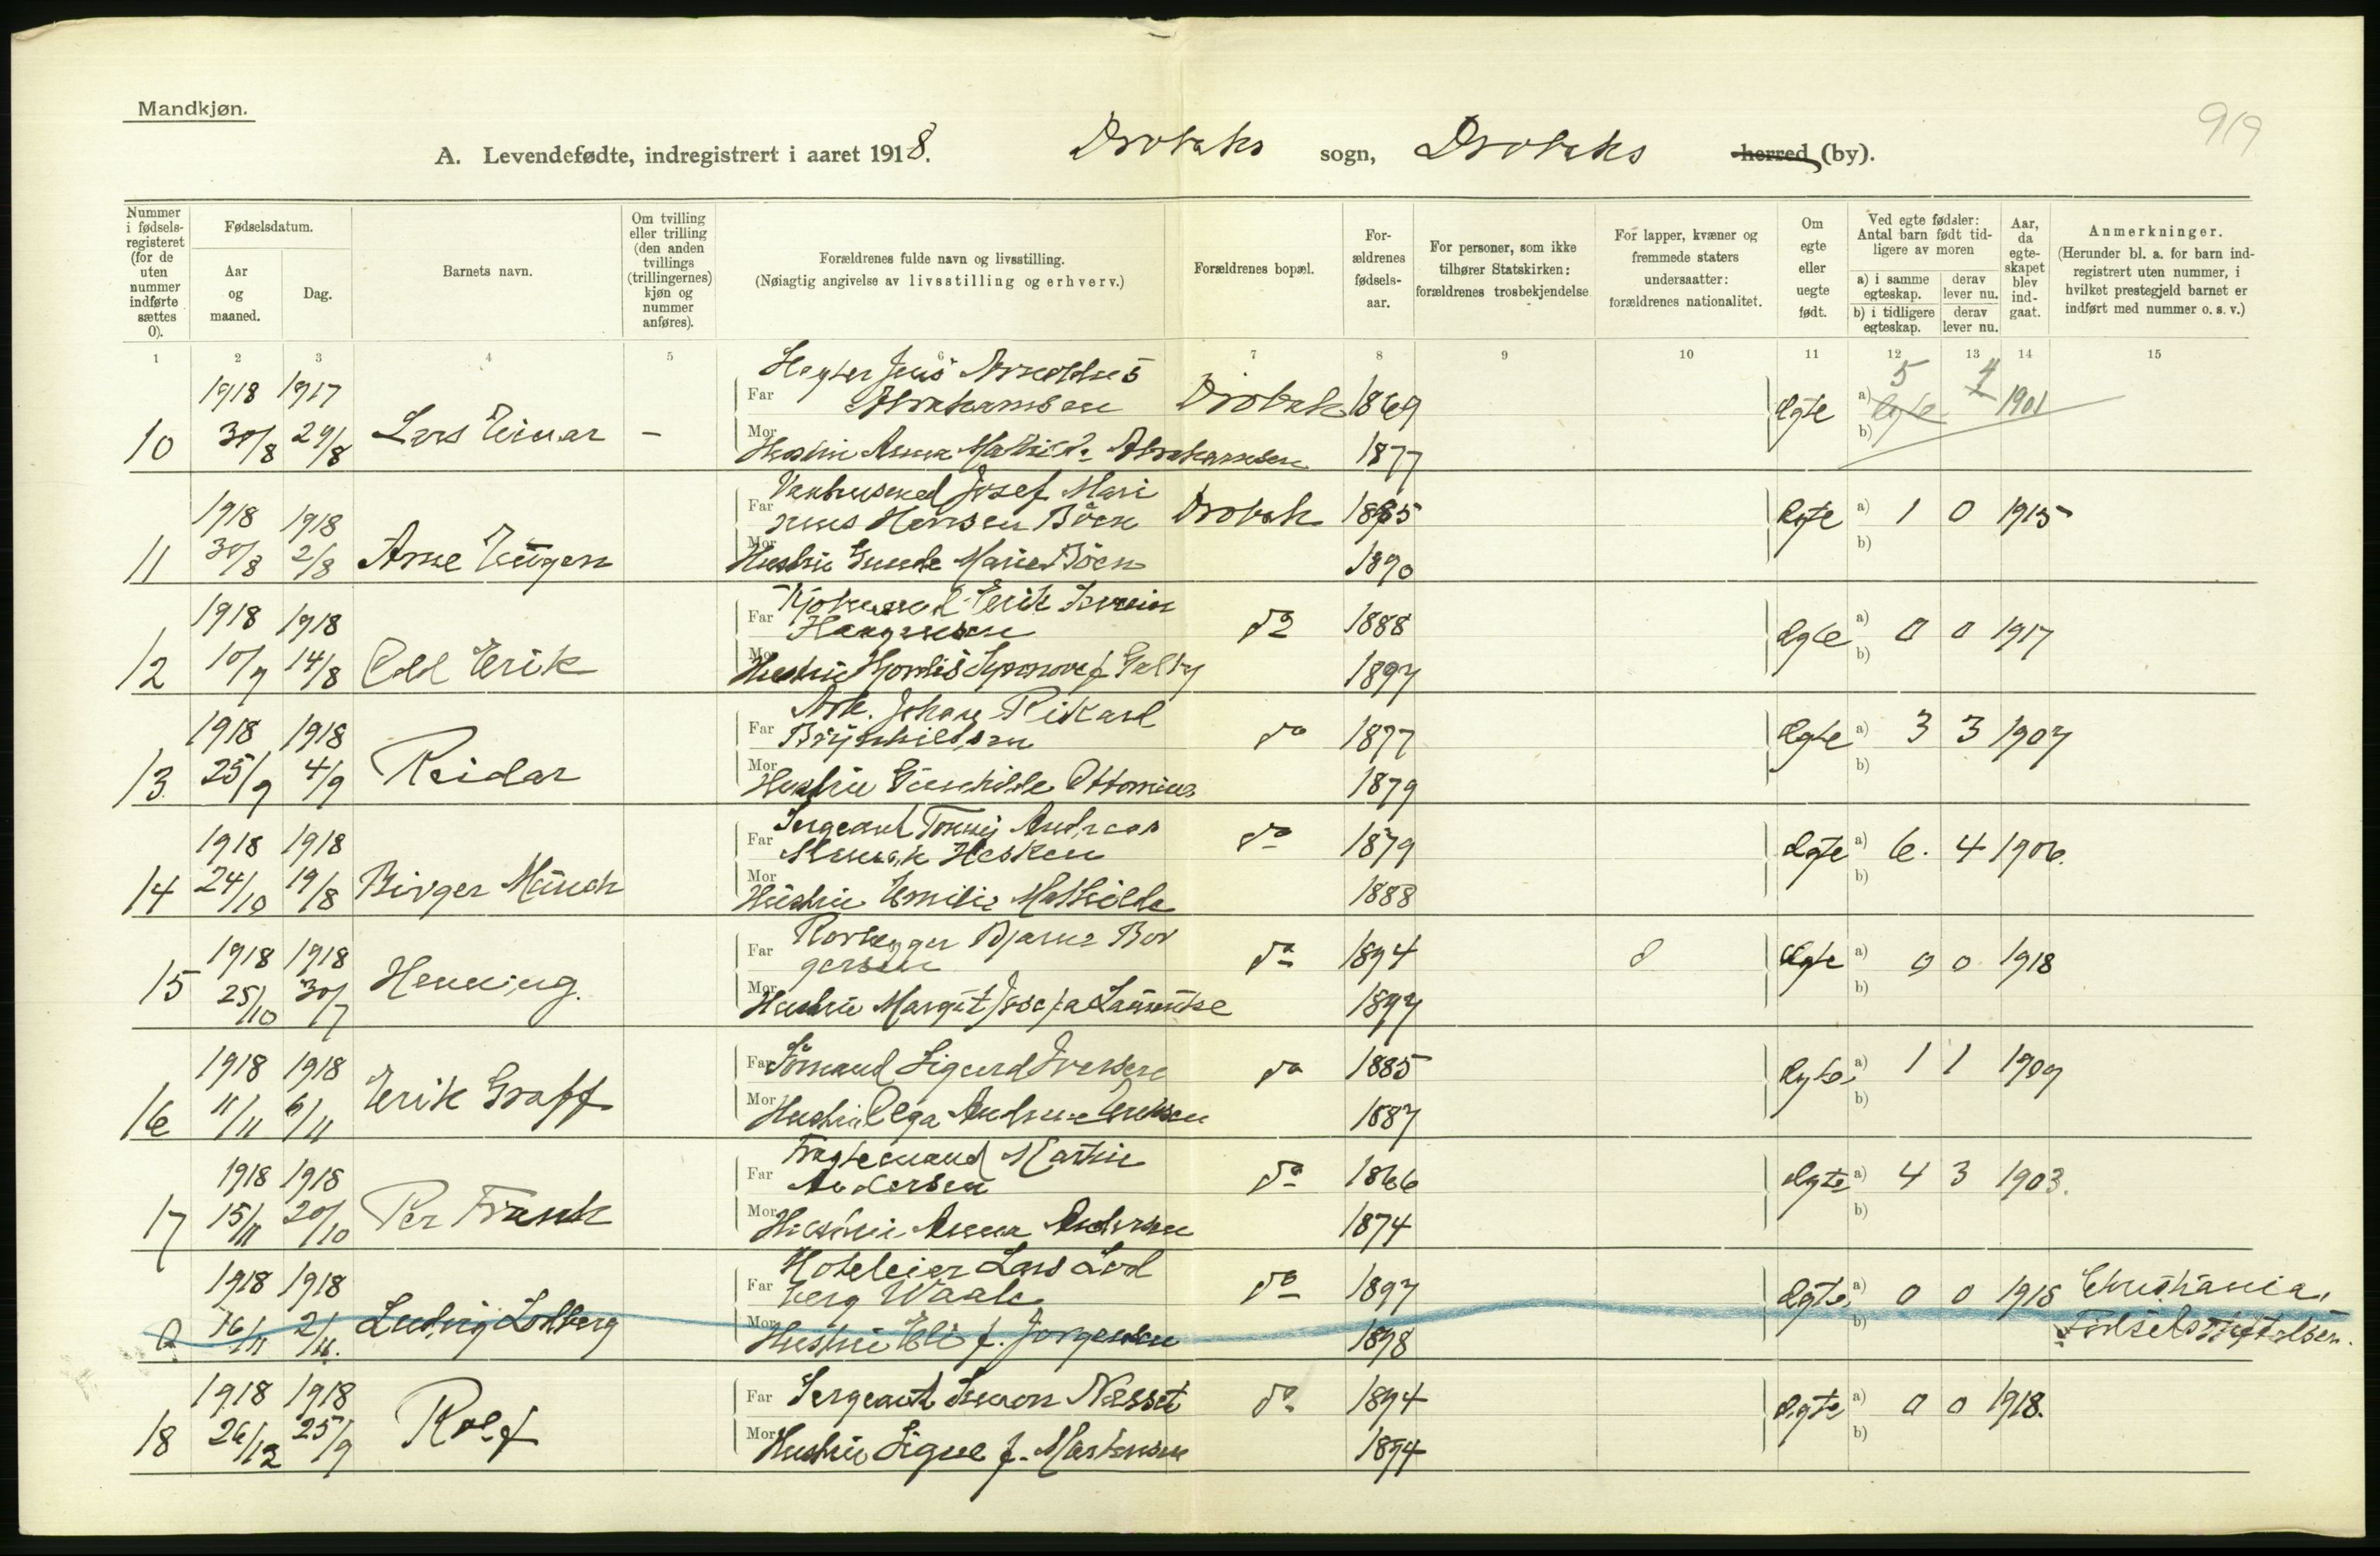 Mandkjøn.
919
A. Levendefødte, indregistrert i aaret 1918. Drøbaks sogn, Drøbaks herred (by).
Nummer i fødsels-registeret (for de uten nummer indførte sættes 0).
Fødselsdatum.
Aar og maaned.
Dag.
Barnets navn.
Om tvilling eller trilling (den anden tvillings (trillingernes) kjøn og nummer anføres).
Forældrenes fulde navn og livsstilling.
(Nøiagtig angivelse av livsstilling og erhverv.)
Forældrenes bopæl.
For-ældrenes fødsels-aar.
For personer, som ikke tilhører Statskirken: forældrenes trosbekjendelse
For lapper, kvæner og fremmede staters undersaatter: forældrenes nationalitet.
Om egte eller uegte født.
Ved egte fødsler: Antal barn født tid-ligere av moren
a) i samme egteskap.
derav lever nu.
b) i tidligere egteskap.
derav lever nu.
Aar, da egte-skapet blev ind-gaat.
Anmerkninger.
(Herunder bl. a. for barn ind-registrert uten nummer, i hvilket prestegjeld barnet er indført med nummer o. s. v.)
1 2 3 4 5 6 7 8 9 10 11 12 13 14 15
1918 1917
10 30/8 29/8 Lars Einar -
Far Jens
Abrahamsen Drøbak 1869
Mor Hustru Anna Mathilde Abrahamsen 1877
egte a) 5 4 1901
b)
1918 1918
11 30/8 2/8 Arne Eugen
Far Josef Mari
nus Hansen Bøen Drøbak 1885
Mor Hustru Marie Bøen 1890
egte a) 1 0 1915
b)
1918 1918
12 10/9 14/8 Odd Erik
Far Erik
do 1888
Mor Hustru Hjordis f 1897
egte a) 0 0 1917
b)
1918 1918
13 25/9 4/9 Reidar
Far Arb. Johan Rikard
Brynhildsen do 1877
Mor Hustru 1879
egte a) 3 3 1907
b)
1918 1918
14 24/10 19/8 Birger Münch
Far Sergeant Andreas
do 1879
Mor Hustru Emilie Mathilde 1888
egte a) 6. 4 1906.
b)
1918 1918
15 25/10 30/7 Henning.
Far Bjarne Bor
gersen do 1894 0
Mor Hustru Margit Josefa 1897
egte a) 0 0 1918
b)
1918 1918
16 11/11 6/11 Erik Graff
Far Sømand Sigurd Iversen do 1885
Mor Hustru Olga 1887
egte a) 1 1 1909
b)
1918 1918
17 15/11 20/10 Per Frank
Far Fragtemand Martin
Andersen do 1866
Mor Hustru Anna Andersen 1874
egte a) 4 3 1903.
b)
1918 1918
0 16/11 2/11. Ludvig Lodberg
Far Hoteleier Lars Lod
berg Waale do 1897
Mor Hustru Eli f. Jørgensen 1898
egte a) 0 0 1918 Christiania,
b) Fødselsstiftelsen.
1918 1918
18 26/12 25/9 Rolf
Far Sergeant Simon Næsset do 1894
Mor Hustru Signe f. Martinsen 1894
egte a) 0 0 1918.
b)